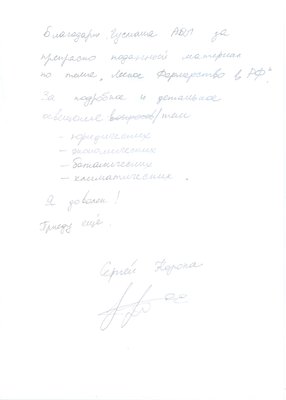 Благодарю Густава АВП за
прекрасно поданный материал
по теме „Лесное Фермерство в РФ“.
За подробное и детальное
освещение вопросов/тем
– юридических
– экономических
– ботанических
– климатических.
Я доволен!
Приеду ещё.
Сергей